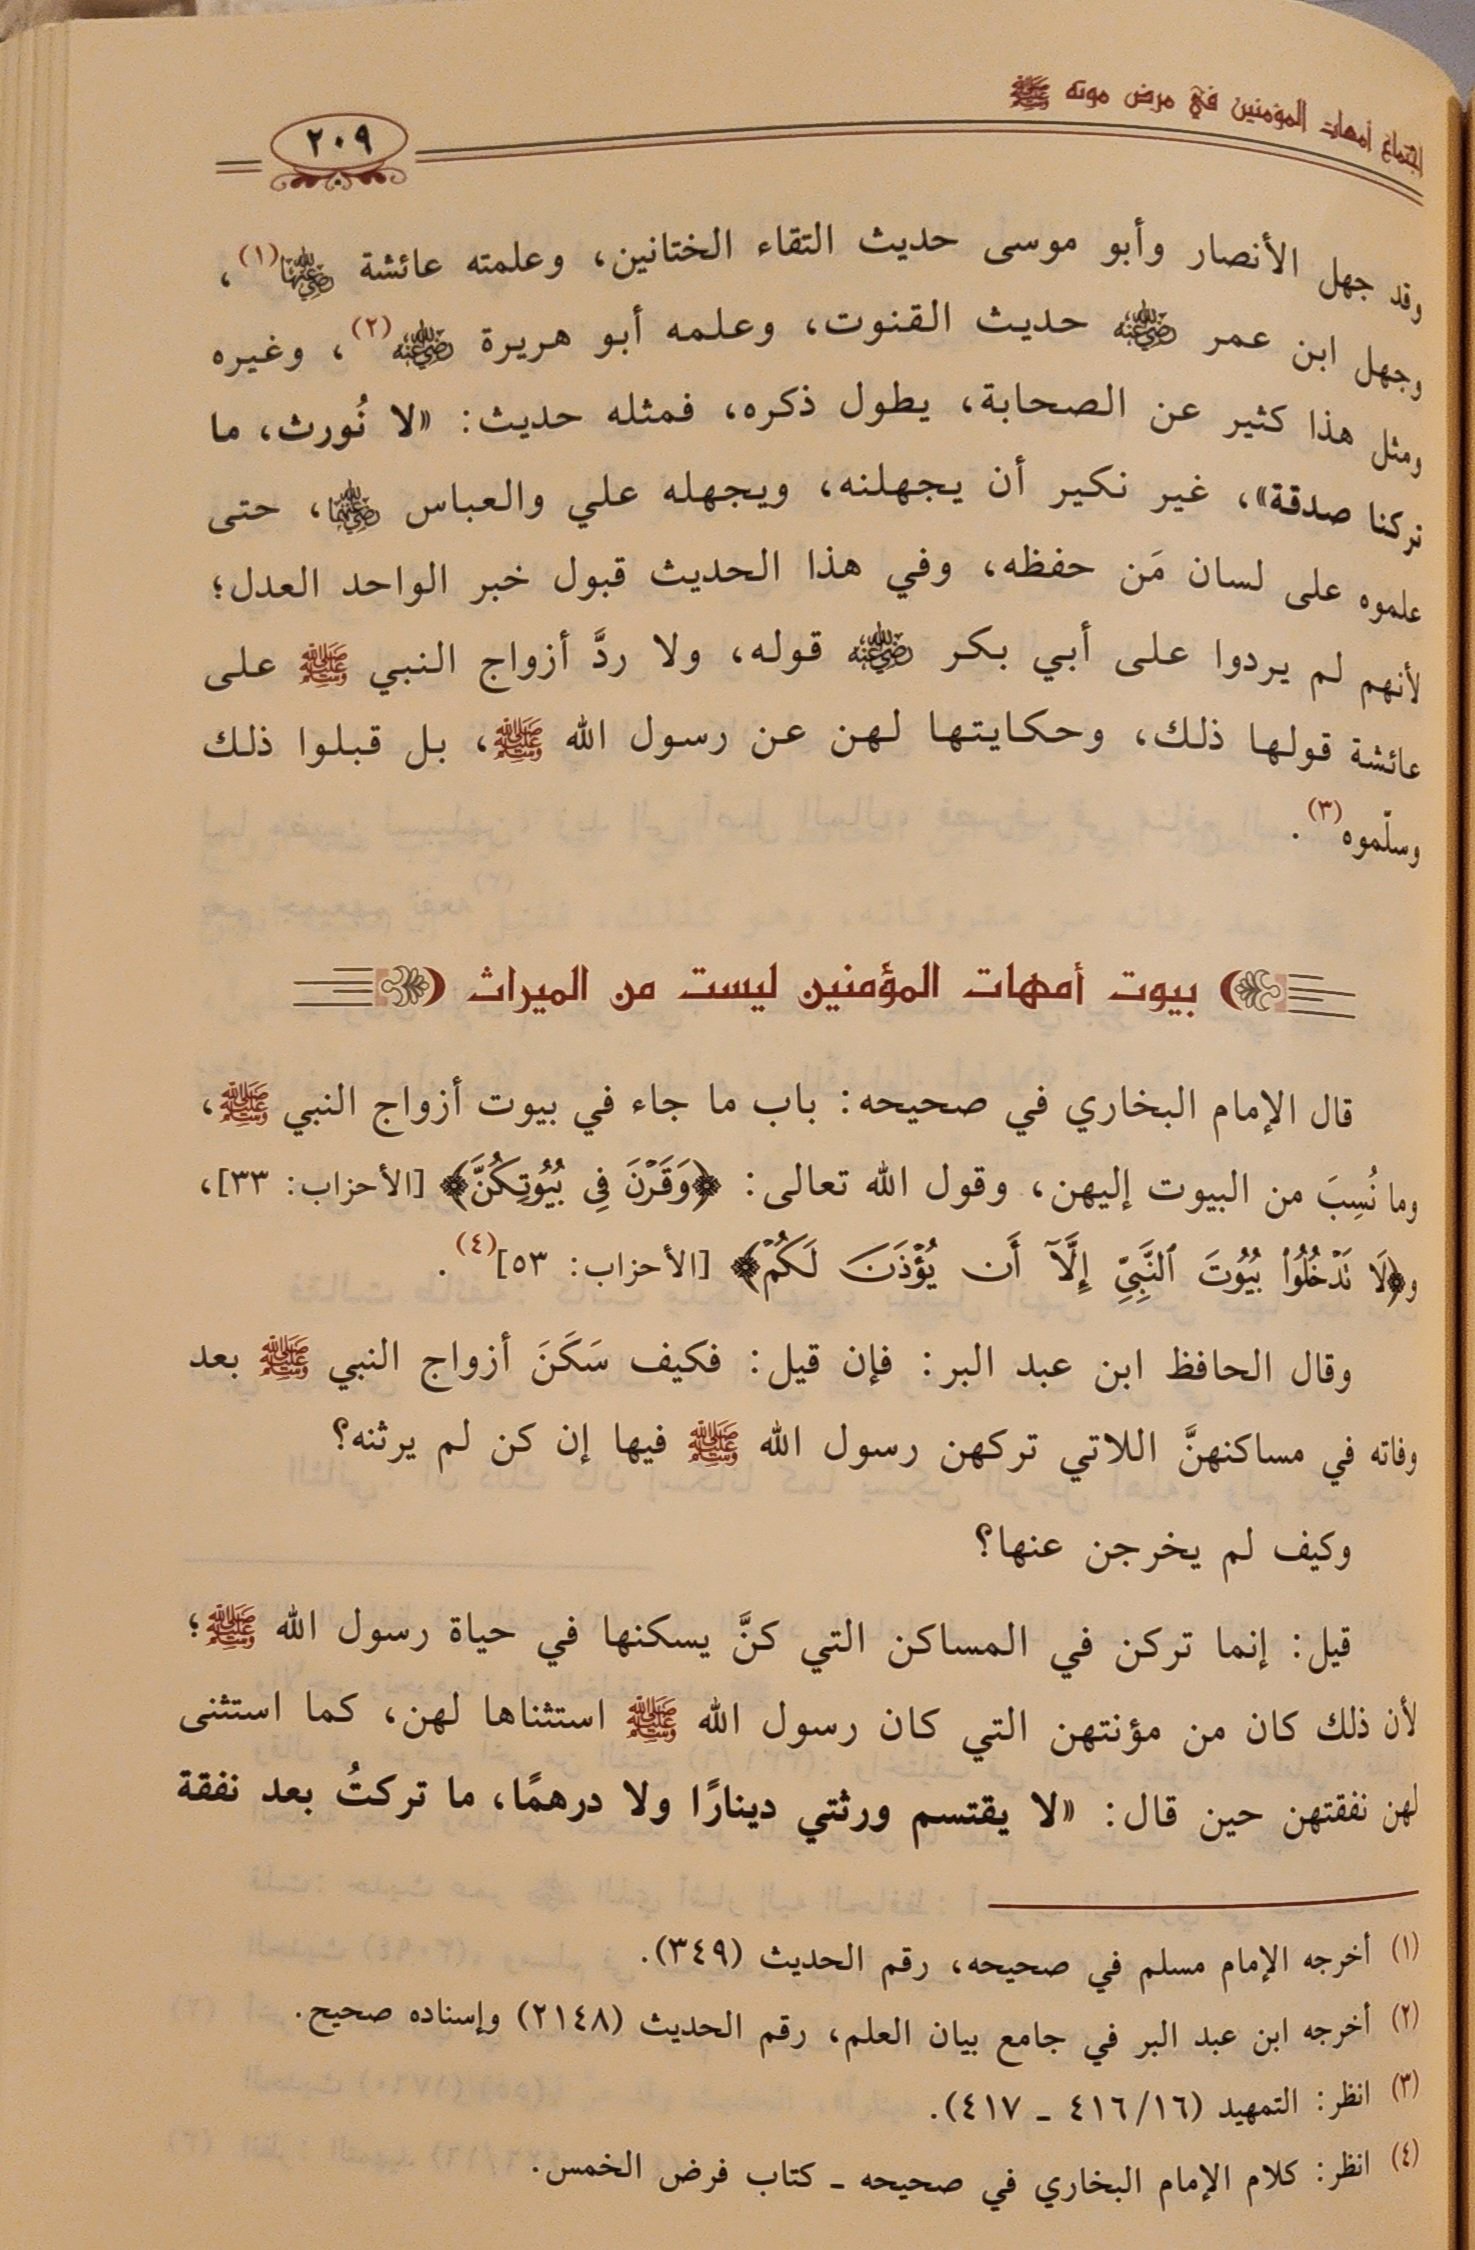 اجتماع أمهات المؤمنين في مرض موته ﷺ
٢٠٩
وقد جهل الأنصار وأبو موسى حديث التقاء الختانين، وعلمته عائشة رضي الله عنها(١)،
وجهل ابن عمر رضي الله عنه حديث القنوت، وعلمه أبو هريرة رضي الله عنه(٢)، وغيره
ومثل هذا كثير عن الصحابة، يطول ذكره، فمثله حديث: «لا نُورث، ما
تركنا صدقة»، غير نكير أن يجهلنه، ويجهله علي والعباس رضي الله عنهما، حتى
علموه على لسان مَن حفظه، وفي هذا الحديث قبول خبر الواحد العدل؛
لأنهم لم يردوا على أبي بكر رضي الله عنه قوله، ولا ردَّ أزواج النبي ﷺ على
عائشة قولها ذلك، وحكايتها لهن عن رسول الله ﷺ، بل قبلوا ذلك
وسلّموه(٣).
بيوت أمهات المؤمنين ليست من الميراث
قال الإمام البخاري في صحيحه: باب ما جاء في بيوت أزواج النبي ﷺ،
وما نُسِبَ من البيوت إليهن، وقول الله تعالى: ﴿وَقَرْنَ فِي بُيُوتِكُنَّ﴾ [الأحزاب: ٣٣]،
و﴿لَا تَدْخُلُوا۟ بُيُوتَ ٱلنَّبِيِّ إِلَّآ أَن يُؤْذَنَ لَكُمْ﴾ [الأحزاب: ٥٣](٤).
وقال الحافظ ابن عبد البر: فإن قيل: فكيف سَكَنَ أزواج النبي ﷺ بعد
وفاته في مساكنهنَّ اللاتي تركهن رسول الله ﷺ فيها إن كن لم يرثنه؟
وكيف لم يخرجن عنها؟
قيل: إنما تركن في المساكن التي كنَّ يسكنها في حياة رسول الله ﷺ؛
لأن ذلك كان من مؤنتهن التي كان رسول الله ﷺ استثناها لهن، كما استثنى
لهن نفقتهن حين قال: «لا يقتسم ورثتي دينارًا ولا درهمًا، ما تركتُ بعد نفقة
(١) أخرجه الإمام مسلم في صحيحه، رقم الحديث (٣٤٩).
(٢) أخرجه ابن عبد البر في جامع بيان العلم، رقم الحديث (٢١٤٨) وإسناده صحيح.
(٣) انظر: التمهيد (٤١٦/١٦ ـ ٤١٧).
(٤) انظر: كلام الإمام البخاري في صحيحه ـ كتاب فرض الخمس.